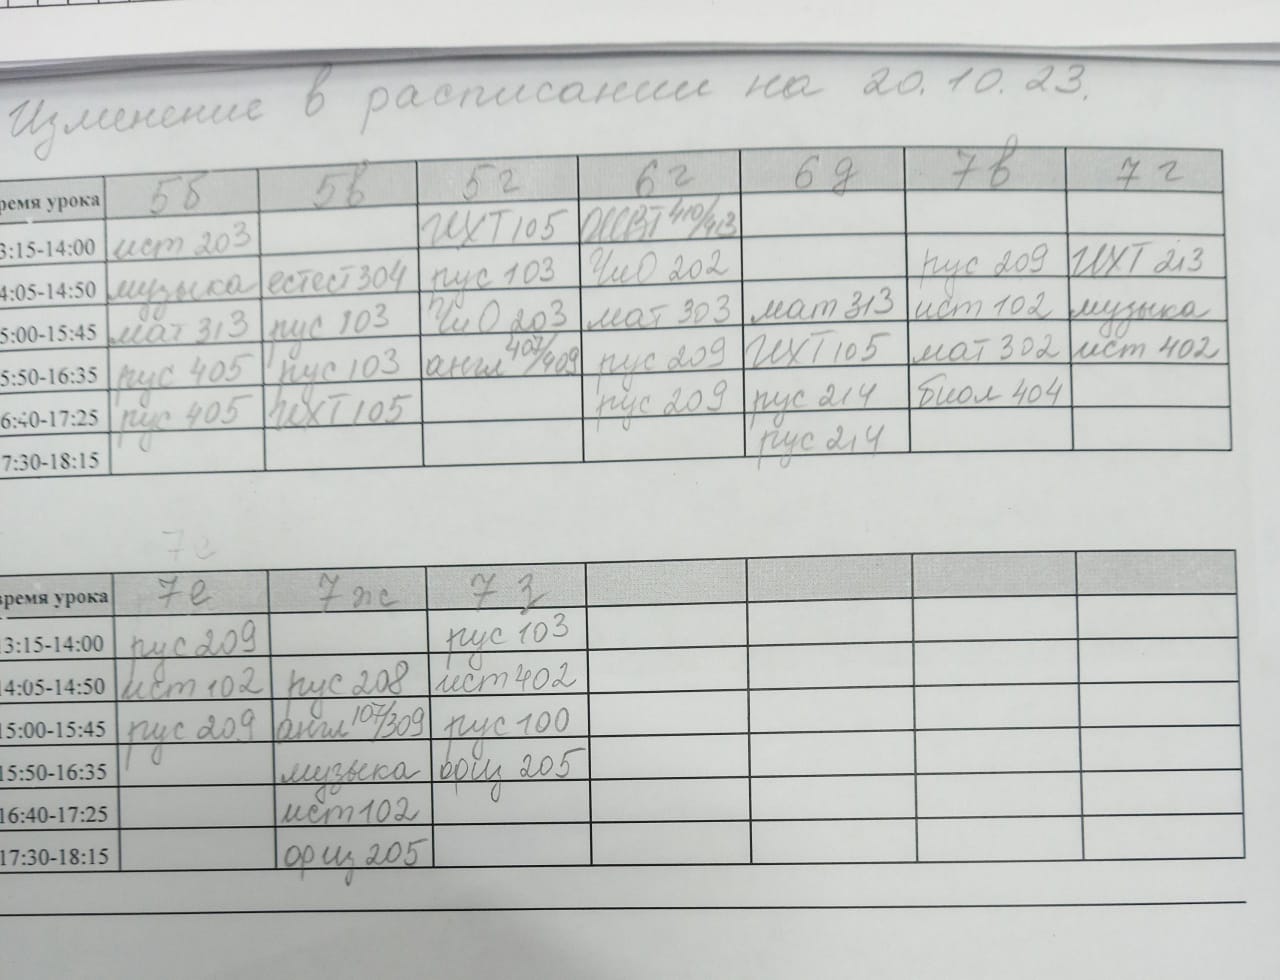 Изменение в расписании на 20.10.23.
ремя урока 5б 5в 5г 6г 6д 7в 7г
3:15-14:00 ист 203 ИХТ 105 410/413
4:05-14:50 музыка естест 304 рус 103 ЧиО 202 рус 209 ИХТ 213
5:00-15:45 мат 313 рус 103 ЧиО 203 мат 303 мат 313 ист 102 музыка
5:50-16:35 рус 405 рус 103 англ 407/409 рус 209 ИХТ 105 мат 302 ист 402
6:40-17:25 рус 405 ИХТ 105 рус 209 рус 214 биол 404
7:30-18:15 рус 214
7е
время урока 7е 7ж 7з
13:15-14:00 рус 209 рус 103
14:05-14:50 ист 102 рус 208 ист 402
15:00-15:45 рус 209 англ 107/309 рус 100
15:50-16:35 музыка 205
16:40-17:25 ист 102
17:30-18:15 205